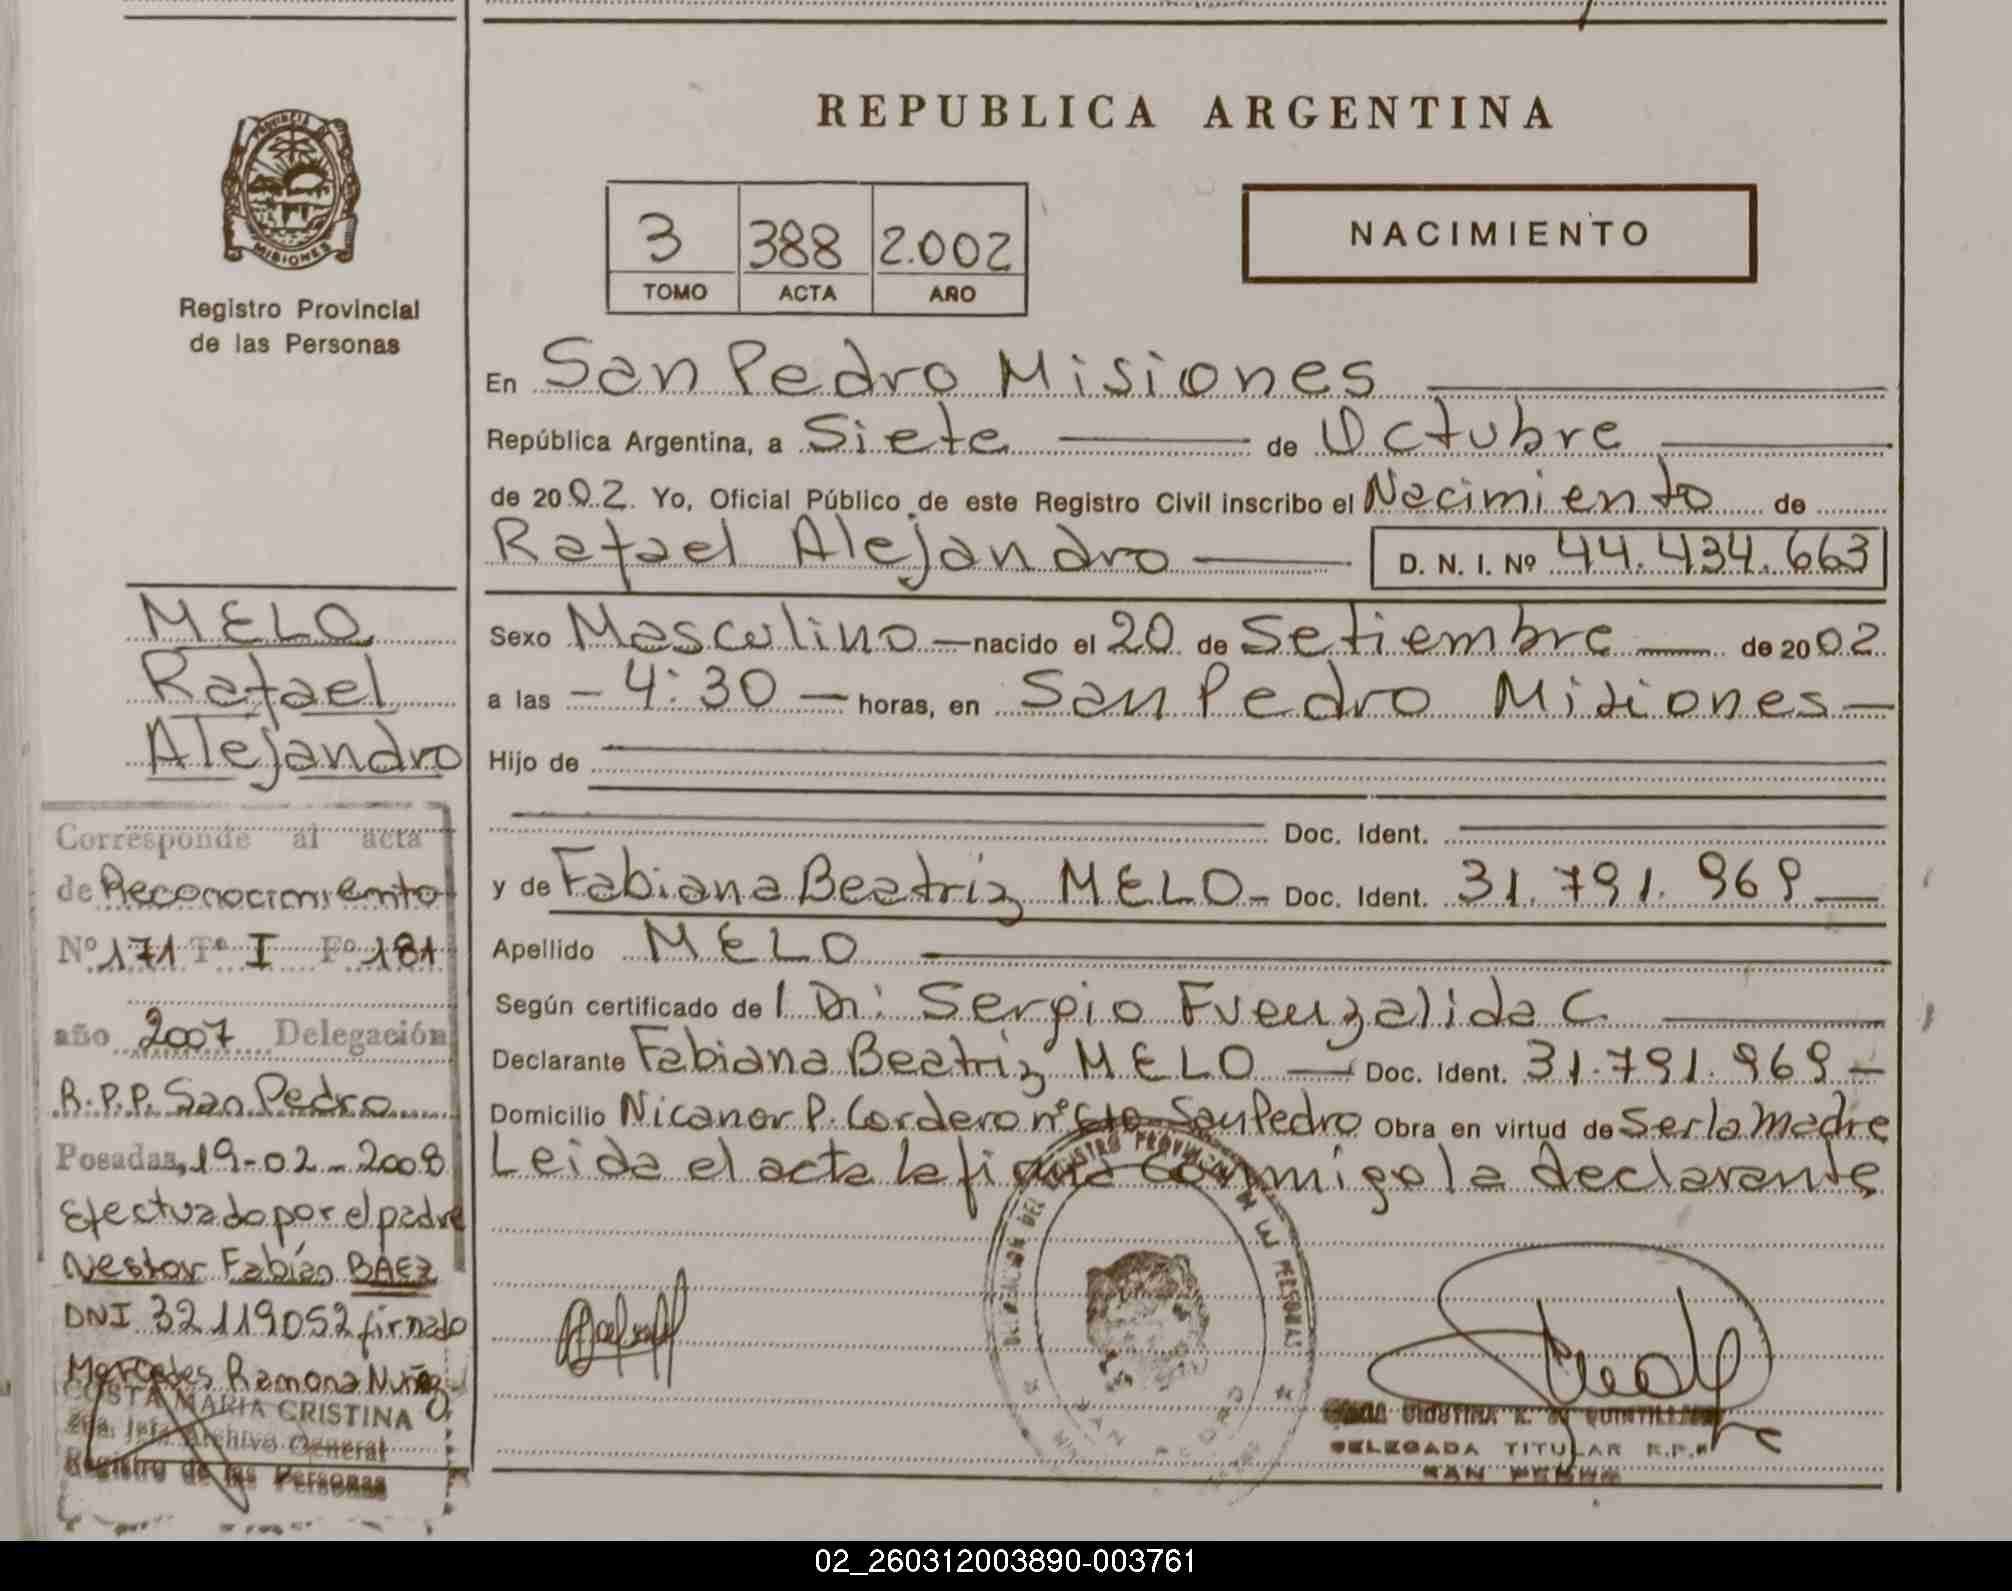 REPUBLICA ARGENTINA
PROVINCIA DE
MISIONES
Registro Provincial
de las Personas
3 388 2.002
TOMO ACTA AÑO
NACIMIENTO
En San Pedro Misiones
República Argentina, a Siete de Octubre
de 2002. Yo, Oficial Público de este Registro Civil inscribo el Nacimiento de
Rafael Alejandro D. N. I. Nº 44.434.663
Sexo Masculino - nacido el 20 de Setiembre de 2002
a las - 4:30 - horas, en San Pedro Misiones -
Hijo de
Doc. Ident.
y de Fabiana Beatriz MELO - Doc. Ident. 31.791.969
Apellido MELO
Según certificado de l Dr: Sergio Fuenzalida C.
Declarante Fabiana Beatriz MELO - Doc. Ident. 31.791.969 -
Domicilio Nicanor P. Cordero nº San Pedro Obra en virtud de Ser la Madre
Leida el acta la firma conmigo la declarante
MELO
Rafael
Alejandro
Corresponde al acta
de Reconocimiento
Nº 171 Tº I Fº 181
año 2007 Delegación
R.P.P. San Pedro
Posadas, 19-02-2008
Efectuado por el padre
Nestor Fabián BAEZ
DNI 32119052 firmado
Mercedes Ramona Nuñez
COSTA MARIA CRISTINA
2da. Jefa Archivo General
Registro de las Personas
DELEGACION DEL REGISTRO PROVINCIAL DE LAS PERSONAS
DELEGADA TITULAR R.P.P.
SAN PEDRO
02_260312003890-003761